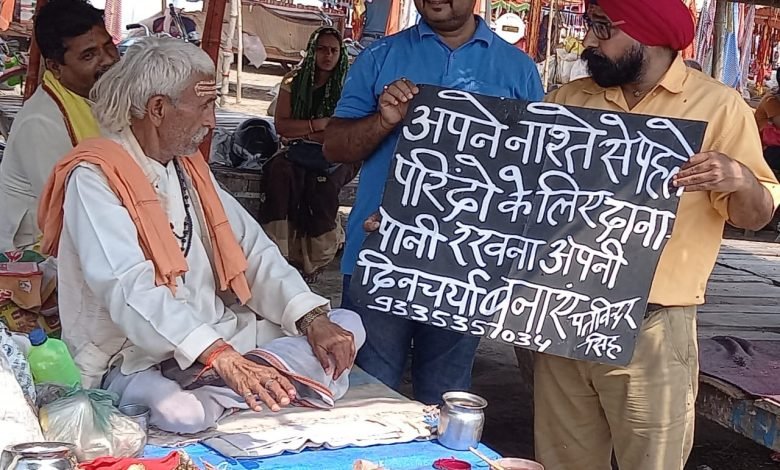 अपने नाश्ते से पहले
परिंदो के लिए दाना-
पानी रखना अपनी
दिनचर्या बनाएं
9335357034
सिंह